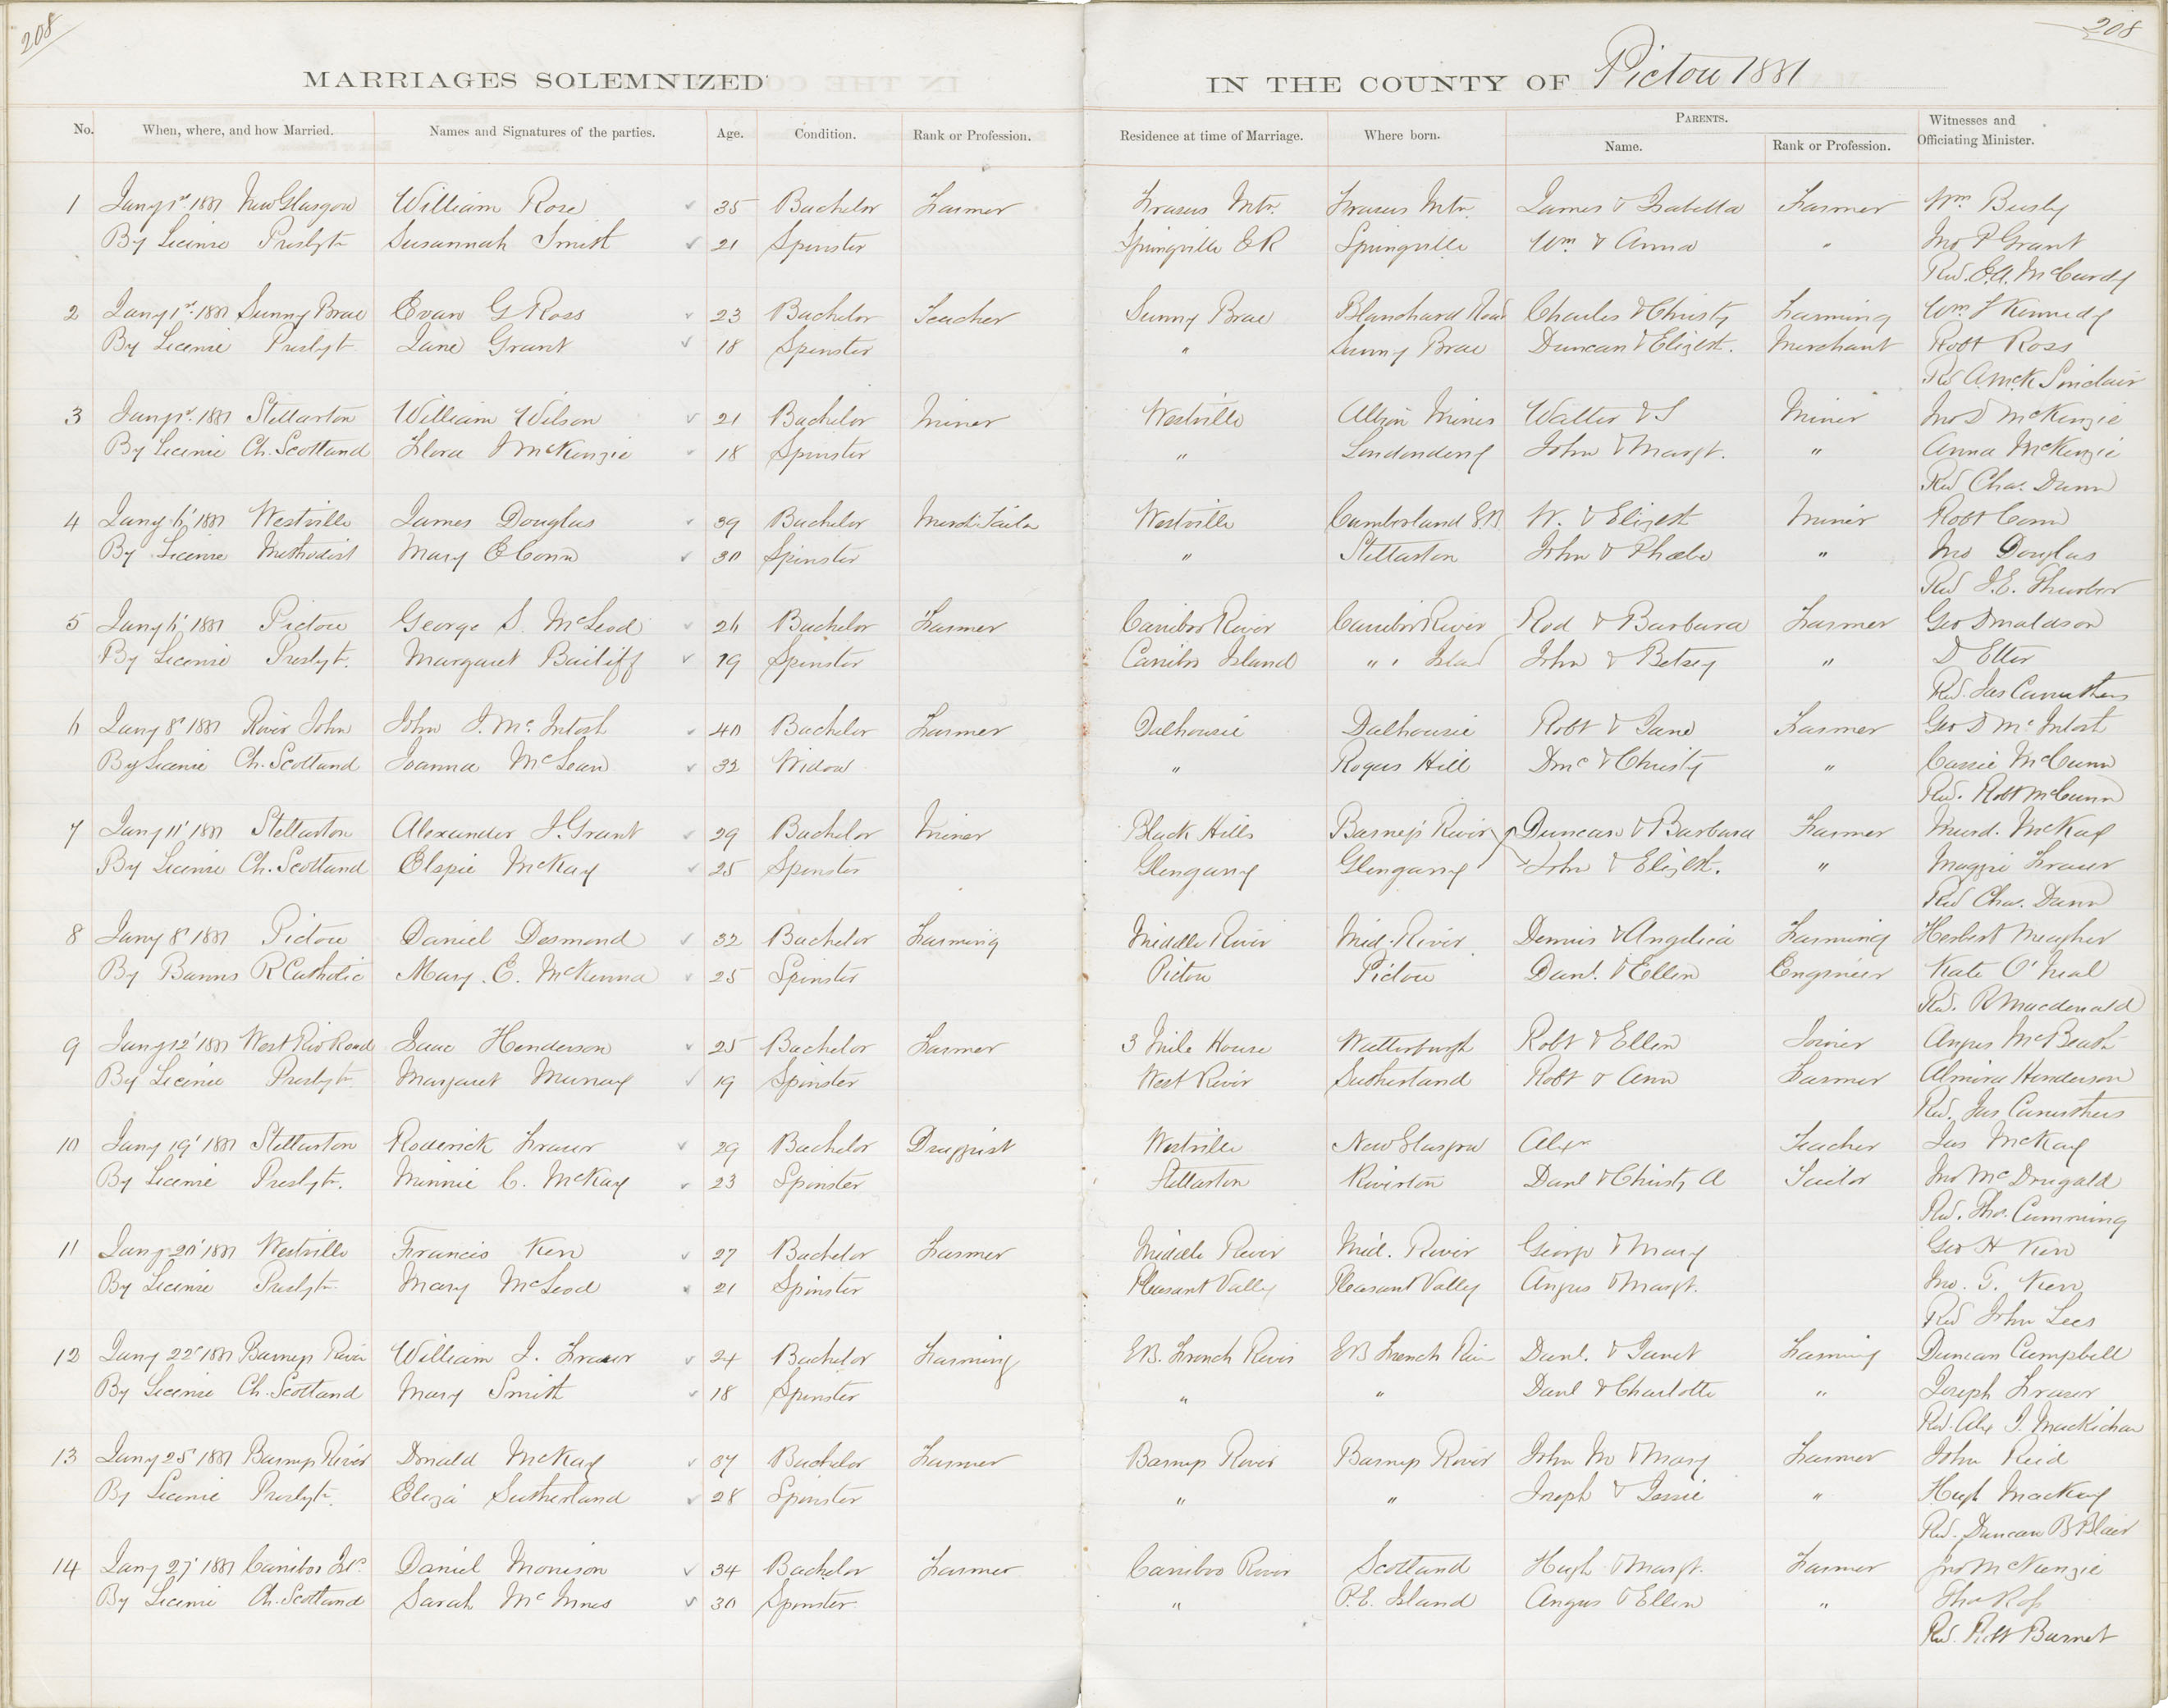 208
208
MARRIAGES SOLEMNIZED
IN THE COUNTY OF Pictou 1881
No. When, where, and how Married. Names and Signatures of the parties. Age. Condition. Rank or Profession. Residence at time of Marriage. Where born. PARENTS. Name. Rank or Profession. Witnesses and Officiating Minister.
1 Jany 1st 1881 New Glasgow William Rose 35 Bachelor Farmer Frasers Mtn. Frasers Mtn. James & Isabella Farmer Wm Busby
By License Presbytn Susannah Smith 21 Spinster Springville E R Springville Wm & Anna " Jno P Grant
Rev. E.A. McCurdy
2 Jany 1st 1881 Sunny Brae Evan G Ross 23 Bachelor Teacher Sunny Brae Blanchard Road Charles & Christy Farming Wm F Kennedy
By License Presbyt. Jane Grant 18 Spinster " Sunny Brae Duncan & Elizbth. Merchant Robt Ross
Rev A McK Sinclair
3 Jany 1st 1881 Stellarton William Wilson 21 Bachelor Miner Westville Albion Mines Walter & S Miner Jno D McKenzie
By License Ch. Scotland Flora J McKenzie 18 Spinster " Londonderry John & Margt. " Anna McKenzie
Rev Chas. Dunn
4 Jany 6' 1881 Westville James Douglas 39 Bachelor Westville Cumberland W. & Elizbth Miner Robt Conn
By License Methodist Mary E Conn 30 Spinster " Stellarton John & Phoebe " Jno Douglas
Rev J.E. Thurbor
5 Jany 6' 1881 Pictou George S. McLeod 26 Bachelor Farmer Cariboo River Cariboo River Rod & Barbara Farmer Geo Donaldson
By License Presbyt. Margaret Bailiff 19 Spinster Cariboo Island " " Island John & Betsey " D Etter
Rev. Jas Carruthers
6 Jany 8' 1881 River John John J. McIntosh 40 Bachelor Farmer Dalhousie Dalhousie Robt & Jane Farmer Geo D McIntosh
By License Ch. Scotland Joanna McLean 32 Widow " Rogers Hill & Christy " Cassie McCunn
Rev. Robt McCunn
7 Jany 11' 1881 Stellarton Alexander J. Grant 29 Bachelor Miner Black Hills Barneys River Duncan & Barbara Farmer Murd. McKay
By License Ch. Scotland Elspie McKay 25 Spinster Glengarry Glengarry John & Elizbth. " Maggie Fraser
Rev Chas. Dunn
8 Jany 8' 1881 Pictou Daniel Desmond 32 Bachelor Farming Middle River Mid. River Dennis & Angelica Farming Herbert Meagher
By Banns R Catholic Mary. E. McKenna 25 Spinster Pictou Pictou Danl. & Ellen Engineer Kate O'Neal
Rev. R Macdonald
9 Jany 12' 1881 West Riv Road Isaac Henderson 25 Bachelor Farmer 3 Mile House Watterburgh Robt & Ellen Joiner Angus McBeath
By License Presbytn Margaret Murray 19 Spinster West River Sutherland Robt & Ann Farmer Almira Henderson
Rev. Jas Carruthers
10 Jany 19' 1881 Stellarton Roderick Fraser 29 Bachelor Druggist Westville New Glasgow Alexr Teacher Jas McKay
By License Presbyt. Minnie C. McKay 23 Spinster Stellarton Riverton Danl & Christy A Tailor Jno McDougald
Rev. Thos. Cumming
11 Jany 20' 1881 Westville Francis Kerr 27 Bachelor Farmer Middle River Mid. River George & Mary Geo H Kerr
By License Presbytn Mary McLeod 21 Spinster Pleasant Valley Pleasant Valley Angus & Margt. Jno. G. Kerr
Rev John Lees
12 Jany 22' 1881 Barneys River William J. Fraser 24 Bachelor Farming EB. French River EB French Riv Danl. & Janet Farming Duncan Campbell
By License Ch. Scotland Mary Smith 18 Spinster " " Danl & Charlotte " Joseph Fraser
Rev. Alex J. MacKichan
13 Jany 25' 1881 Barneys River Donald McKay 37 Bachelor Farmer Barneys River Barneys River John M & Mary Farmer John Reid
By License Presbyt. Eliza Sutherland 28 Spinster " " Joseph & Jessie " Hugh MacKay
Rev. Duncan B Blair
14 Jany 27' 1881 Cariboo Daniel Morrison 34 Bachelor Farmer Cariboo River Scotland Hugh & Margt. Farmer Jno McKenzie
By License Ch. Scotland Sarah McInnes 30 Spinster " P.E. Island Angus & Ellen " Thos Ross
Rev. Robt Burnet